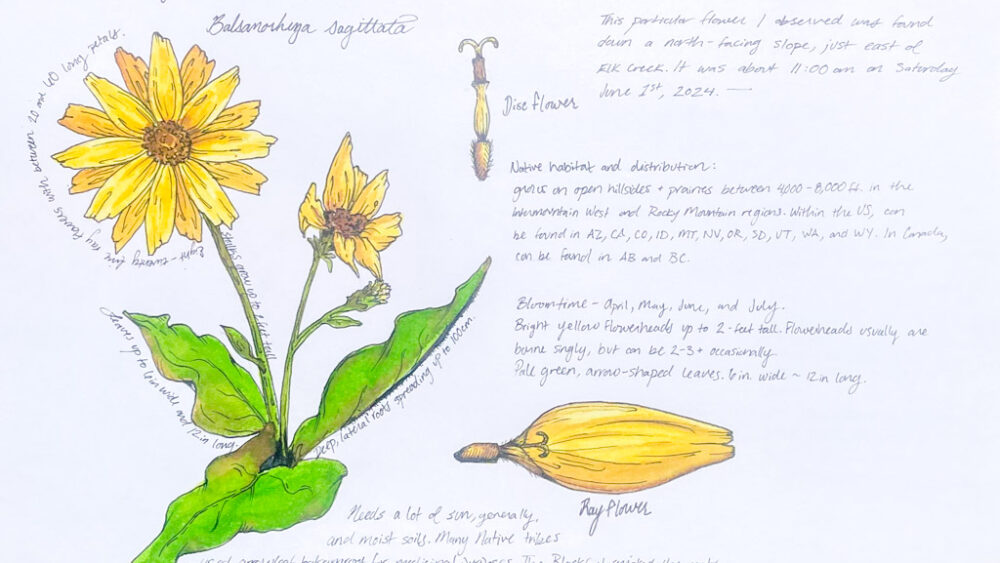 Balsamorhiza sagittata
This particular flower I observed was found
down a north-facing slope, just east of
Elk Creek. It was about 11:00 am on Saturday
June 1st, 2024.
Disc flower
Native habitat and distribution:
grows on open hillsides + prairies between 4000-8,000 ft. in the
intermountain West and Rocky Mountain regions. Within the US, can
be found in AZ, CA, CO, ID, MT, NV, OR, SD, UT, WA, and WY. In Canada,
can be found in AB and BC.
Bloomtime - April, May, June, and July.
Bright yellow flowerheads up to 2-feet tall. Flowerheads usually are
borne singly, but can be 2-3+ occasionally.
Pale green, arrow-shaped leaves. 6 in. wide ~ 12 in long.
Eight-twenty five ray flowers with between 20 and 40 long petals.
Stalks grow up to 2 feet tall
Leaves up to 6 in wide and 12 in long.
Deep, lateral roots spreading up to 100cm.
Ray flower
Needs a lot of sun, generally,
and moist soils. Many Native tribes
used arrowleaf balsamroot for medicinal purposes. The